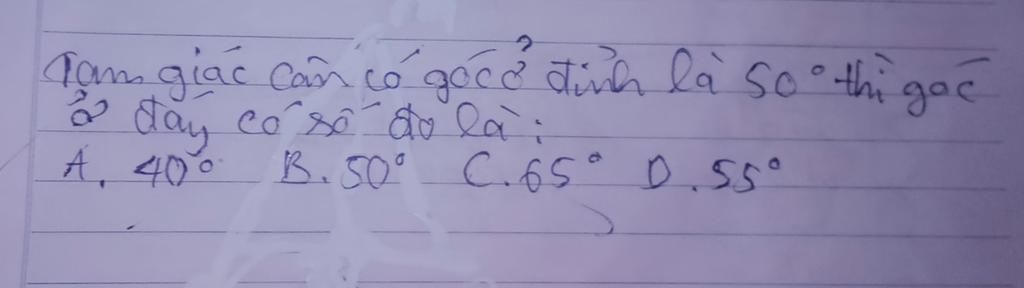 Tam giác cân có góc ở đỉnh là 50° thì góc
ở đáy có số đo là:
A. 40° B. 50° C. 65° D. 55°